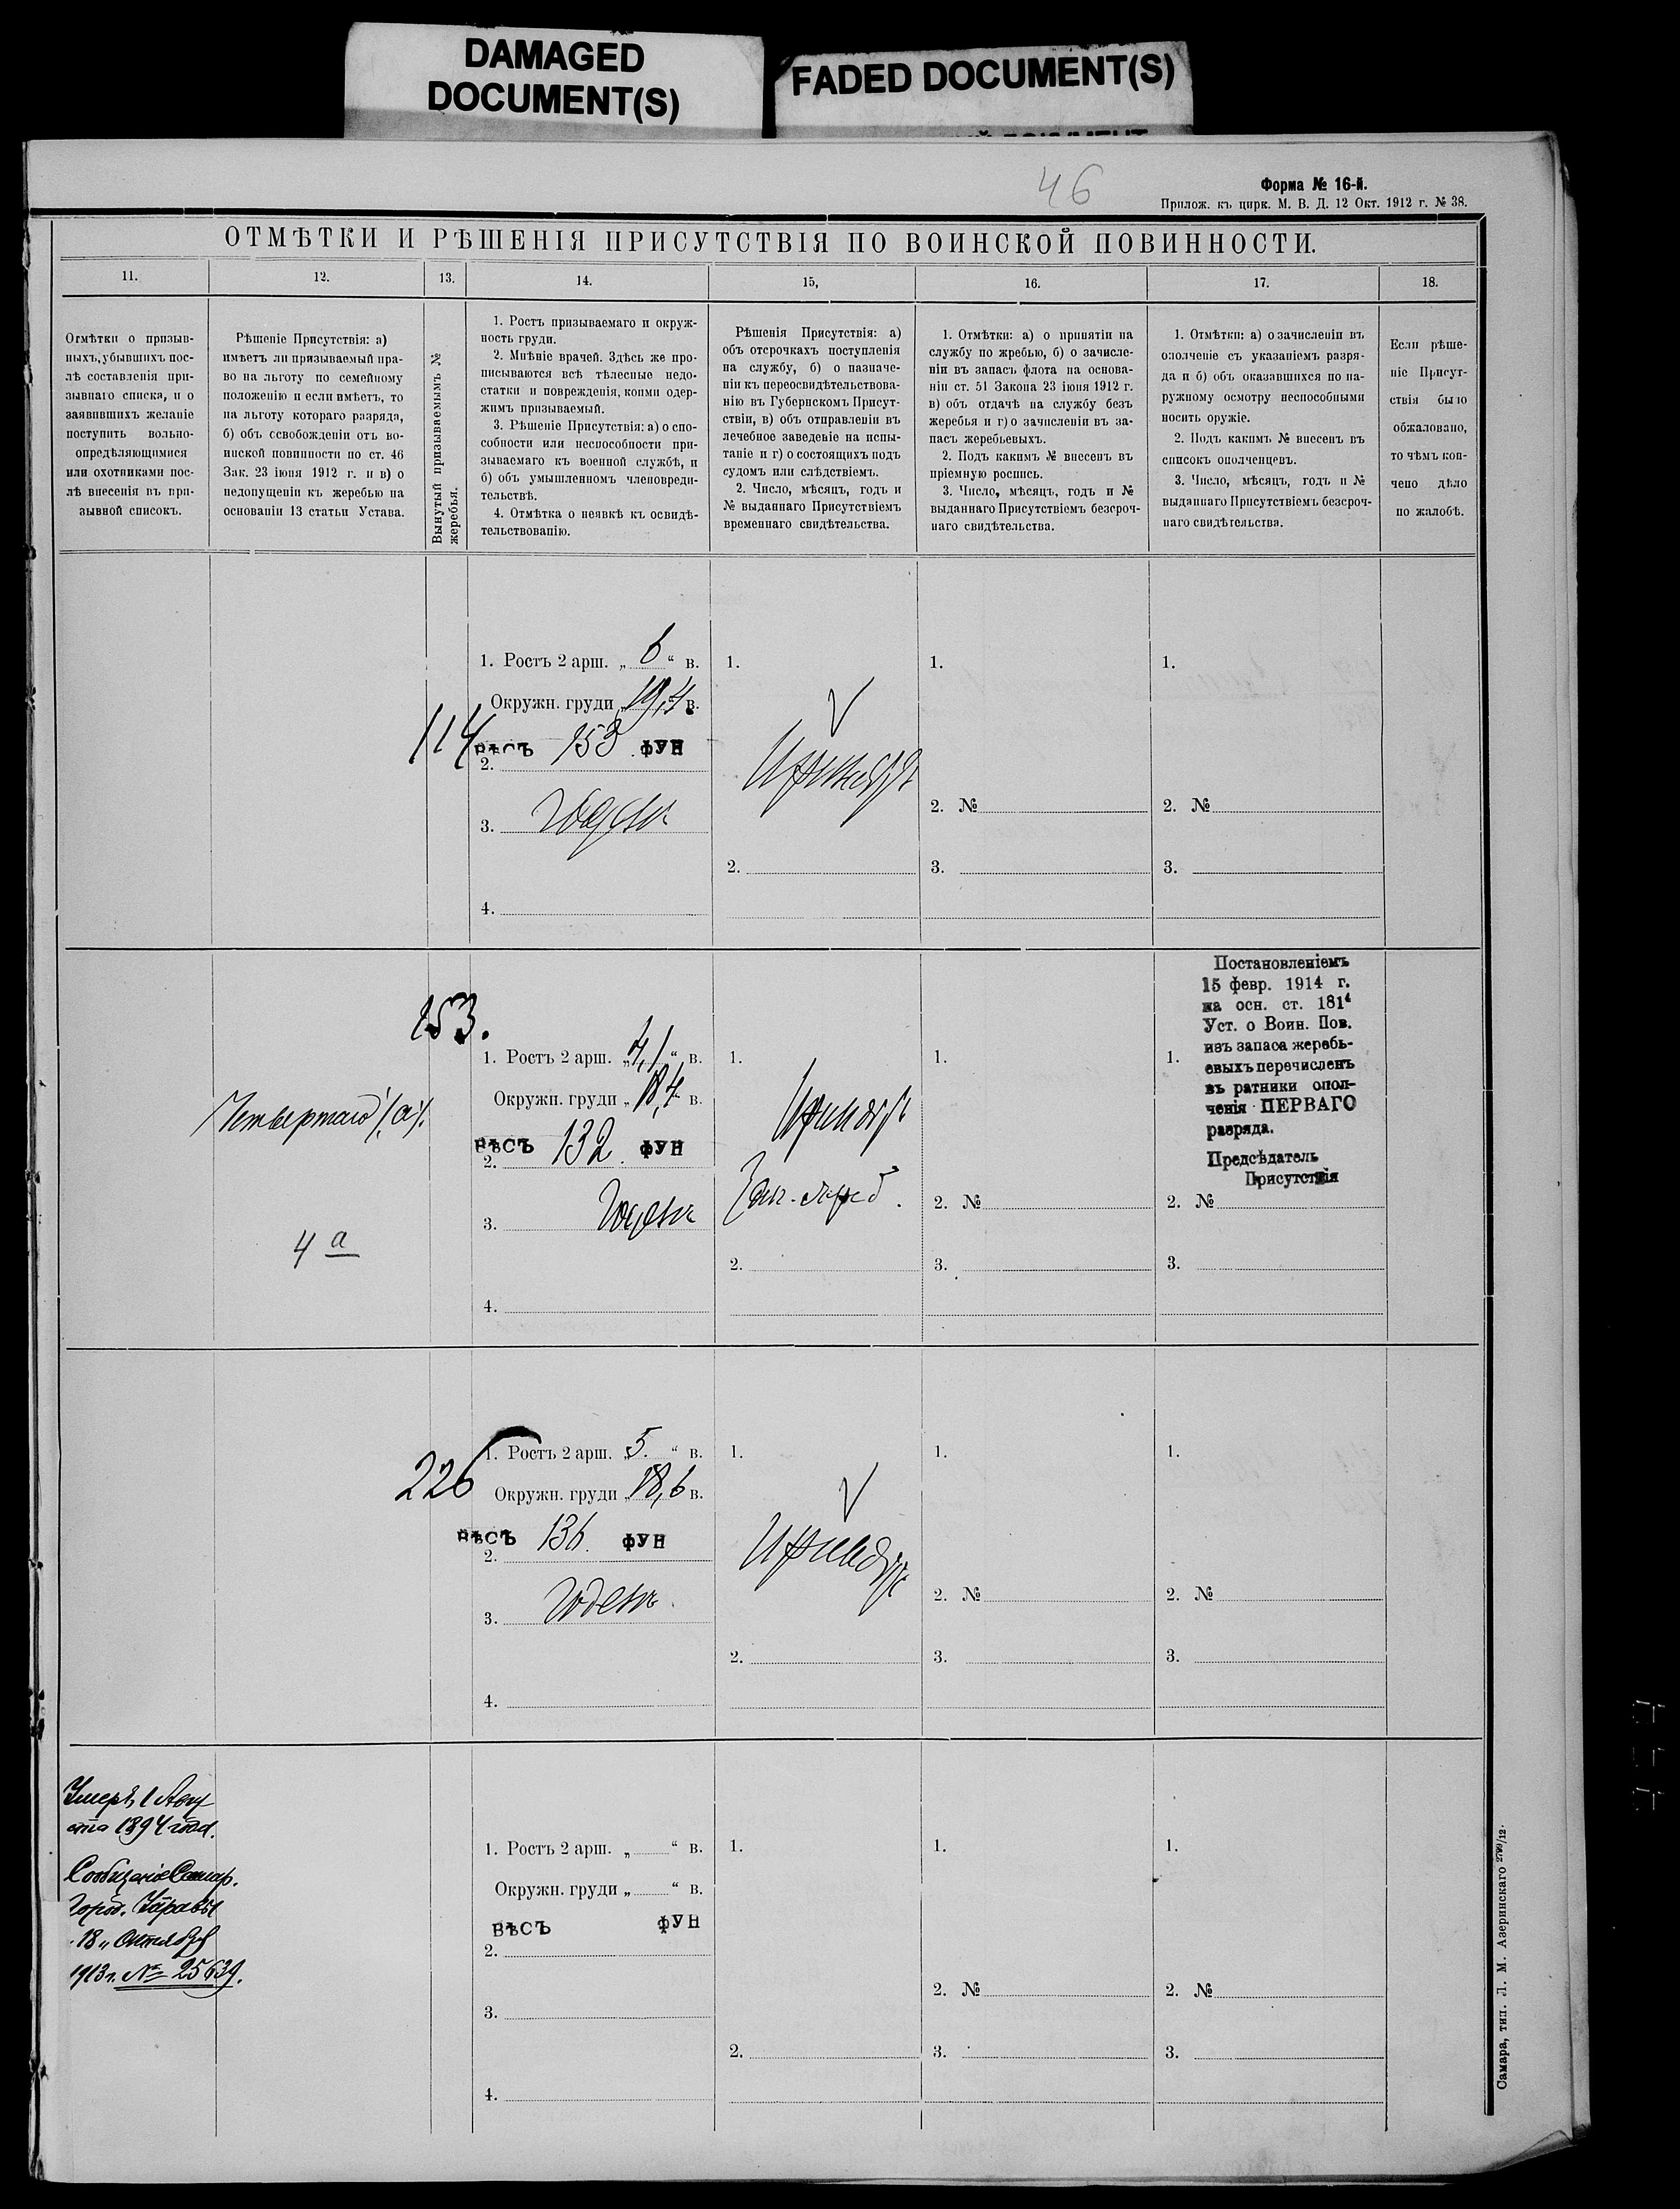 DAMAGED
DOCUMENT(S)
FADED DOCUMENT(S)
46
Форма № 16-й.
Прилож. къ цирк. М. В. Д. 12 Окт. 1912 г. № 38.
ОТМѢТКИ И РѢШЕНІЯ ПРИСУТСТВІЯ ПО ВОИНСКОЙ ПОВИННОСТИ.
11.
12.
13.
14.
15,
16.
17.
18.
Отмѣтки о призыв-
ныхъ, убывшихъ пос-
лѣ составленія при-
зывнаго списка, и о
заявившихъ желаніе
поступить вольно-
опредѣляющимися
или охотниками пос-
лѣ внесенія въ при-
зывной списокъ.
Рѣшеніе Присутствія: а)
имѣетъ ли призываемый пра-
во на льготу по семейному
положенію и если имѣетъ, то
на льготу котораго разряда,
б) объ освобожденіи отъ во-
инской повинности по ст. 46
Зак. 23 іюня 1912 г. и в) о
недопущеніи къ жеребью на
основаніи 13 статьи Устава.
Вынутый призываемымъ №
жеребья.
1. Ростъ призываемаго и окруж-
ность груди.
2. Мнѣніе врачей. Здѣсь же про-
писываются всѣ тѣлесные недо-
статки и поврежденія, коими одер-
жимъ призываемый.
3. Рѣшеніе Присутствія: а) о спо-
собности или неспособности при-
зываемаго къ военной службѣ, и
б) объ умышленномъ членовреди-
тельствѣ.
4. Отмѣтка о неявкѣ къ освидѣ-
тельствованію.
Рѣшенія Присутствія: а)
объ отсрочкахъ поступленія
на службу, б) о назначе-
ніи къ переосвидѣтельствова-
нію въ Губернскомъ Присут-
ствіи, в) объ отправленіи въ
лечебное заведеніе на испы-
таніе и г) о состоящихъ подъ
судомъ или слѣдствіемъ.
2. Число, мѣсяцъ, годъ и
№ выданнаго Присутствіемъ
временнаго свидѣтельства.
1. Отмѣтки: а) о принятіи на
службу по жребью, б) о зачисле-
ніи въ запасъ флота на основа-
ніи ст. 51 Закона 23 іюня 1912 г.
в) объ отдачѣ на службу безъ
жеребья и г) о зачисленіи въ за-
пасъ жеребьевыхъ.
2. Подъ какимъ № внесенъ въ
пріемную роспись.
3. Число, мѣсяцъ, годъ и №
выданнаго Присутствіемъ безсроч-
наго свидѣтельства.
1. Отмѣтки: а) о зачисленіи въ
ополченіе съ указаніемъ разря-
да и б) объ оказавшихся по на-
ружному осмотру неспособными
носить оружіе.
2. Подъ какимъ № внесенъ въ
списокъ ополченцевъ.
3. Число, мѣсяцъ, годъ и №
выданнаго Присутствіемъ безсроч-
наго свидѣтельства.
Если рѣше-
ніе Присут-
ствія было
обжаловано,
то чѣмъ кон-
чено дѣло
по жалобѣ.
114
1. Ростъ 2 арш. „ 6 “ в.
Окружн. груди „ 19,4 в.
ВѢСЪ 153 ФУН
2.
3. Годенъ
4.
1.
Принятъ
2.
1.
2. №
3.
1.
2. №
3.
Четвертаго /а/.
4 а
153.
1. Ростъ 2 арш. „ 4,1 “ в.
Окружн. груди „ 18,4 в.
ВѢСЪ 132 ФУН
2.
3. Годенъ
4.
1.
Принятъ
2.
1.
2. №
3.
Постановленіемъ
15 февр. 1914 г.
на осн. ст. 181⁴
Уст. о Воин. Пов.
изъ запаса жеребь-
евыхъ перечисленъ
въ ратники опол-
ченія ПЕРВАГО
разряда.
Предсѣдатель
Присутствія
1.
2. №
3.
226
1. Ростъ 2 арш. „ 5. “ в.
Окружн. груди „ 18,6 в.
ВѢСЪ 136 ФУН
2.
3. Годенъ
4.
1.
Принятъ
2.
1.
2. №
3.
1.
2. №
3.
Умеръ 1 Авгу
ста 1894 года.
Сообщеніе Самар.
Город. Управы
„18„ Октября
1913 г. № 25639.
1. Ростъ 2 арш. „ “ в.
Окружн. груди „ “ в.
ВѢСЪ ФУН
2.
3.
4.
1.
2.
1.
2. №
3.
1.
2. №
3.
Самара, тип. Л. М. Азеринскаго 2799/12.